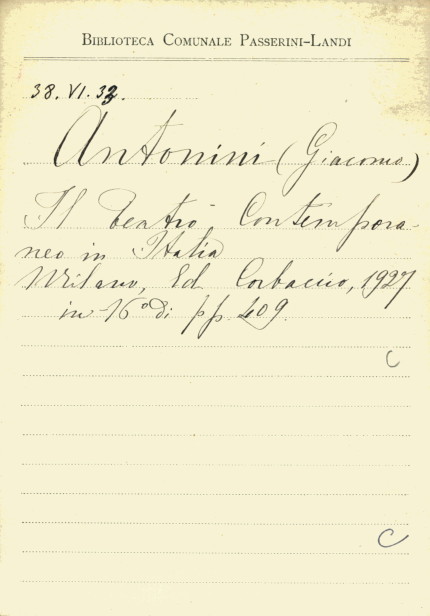 BIBLIOTECA COMUNALE PASSERINI-LANDI
38. VI. 32.
Antonini (Giacomo)
Il teatro Contempora-
neo in Italia
Milano, Ed Corbaccio, 1927
in-16° di pp. 409.
C
C